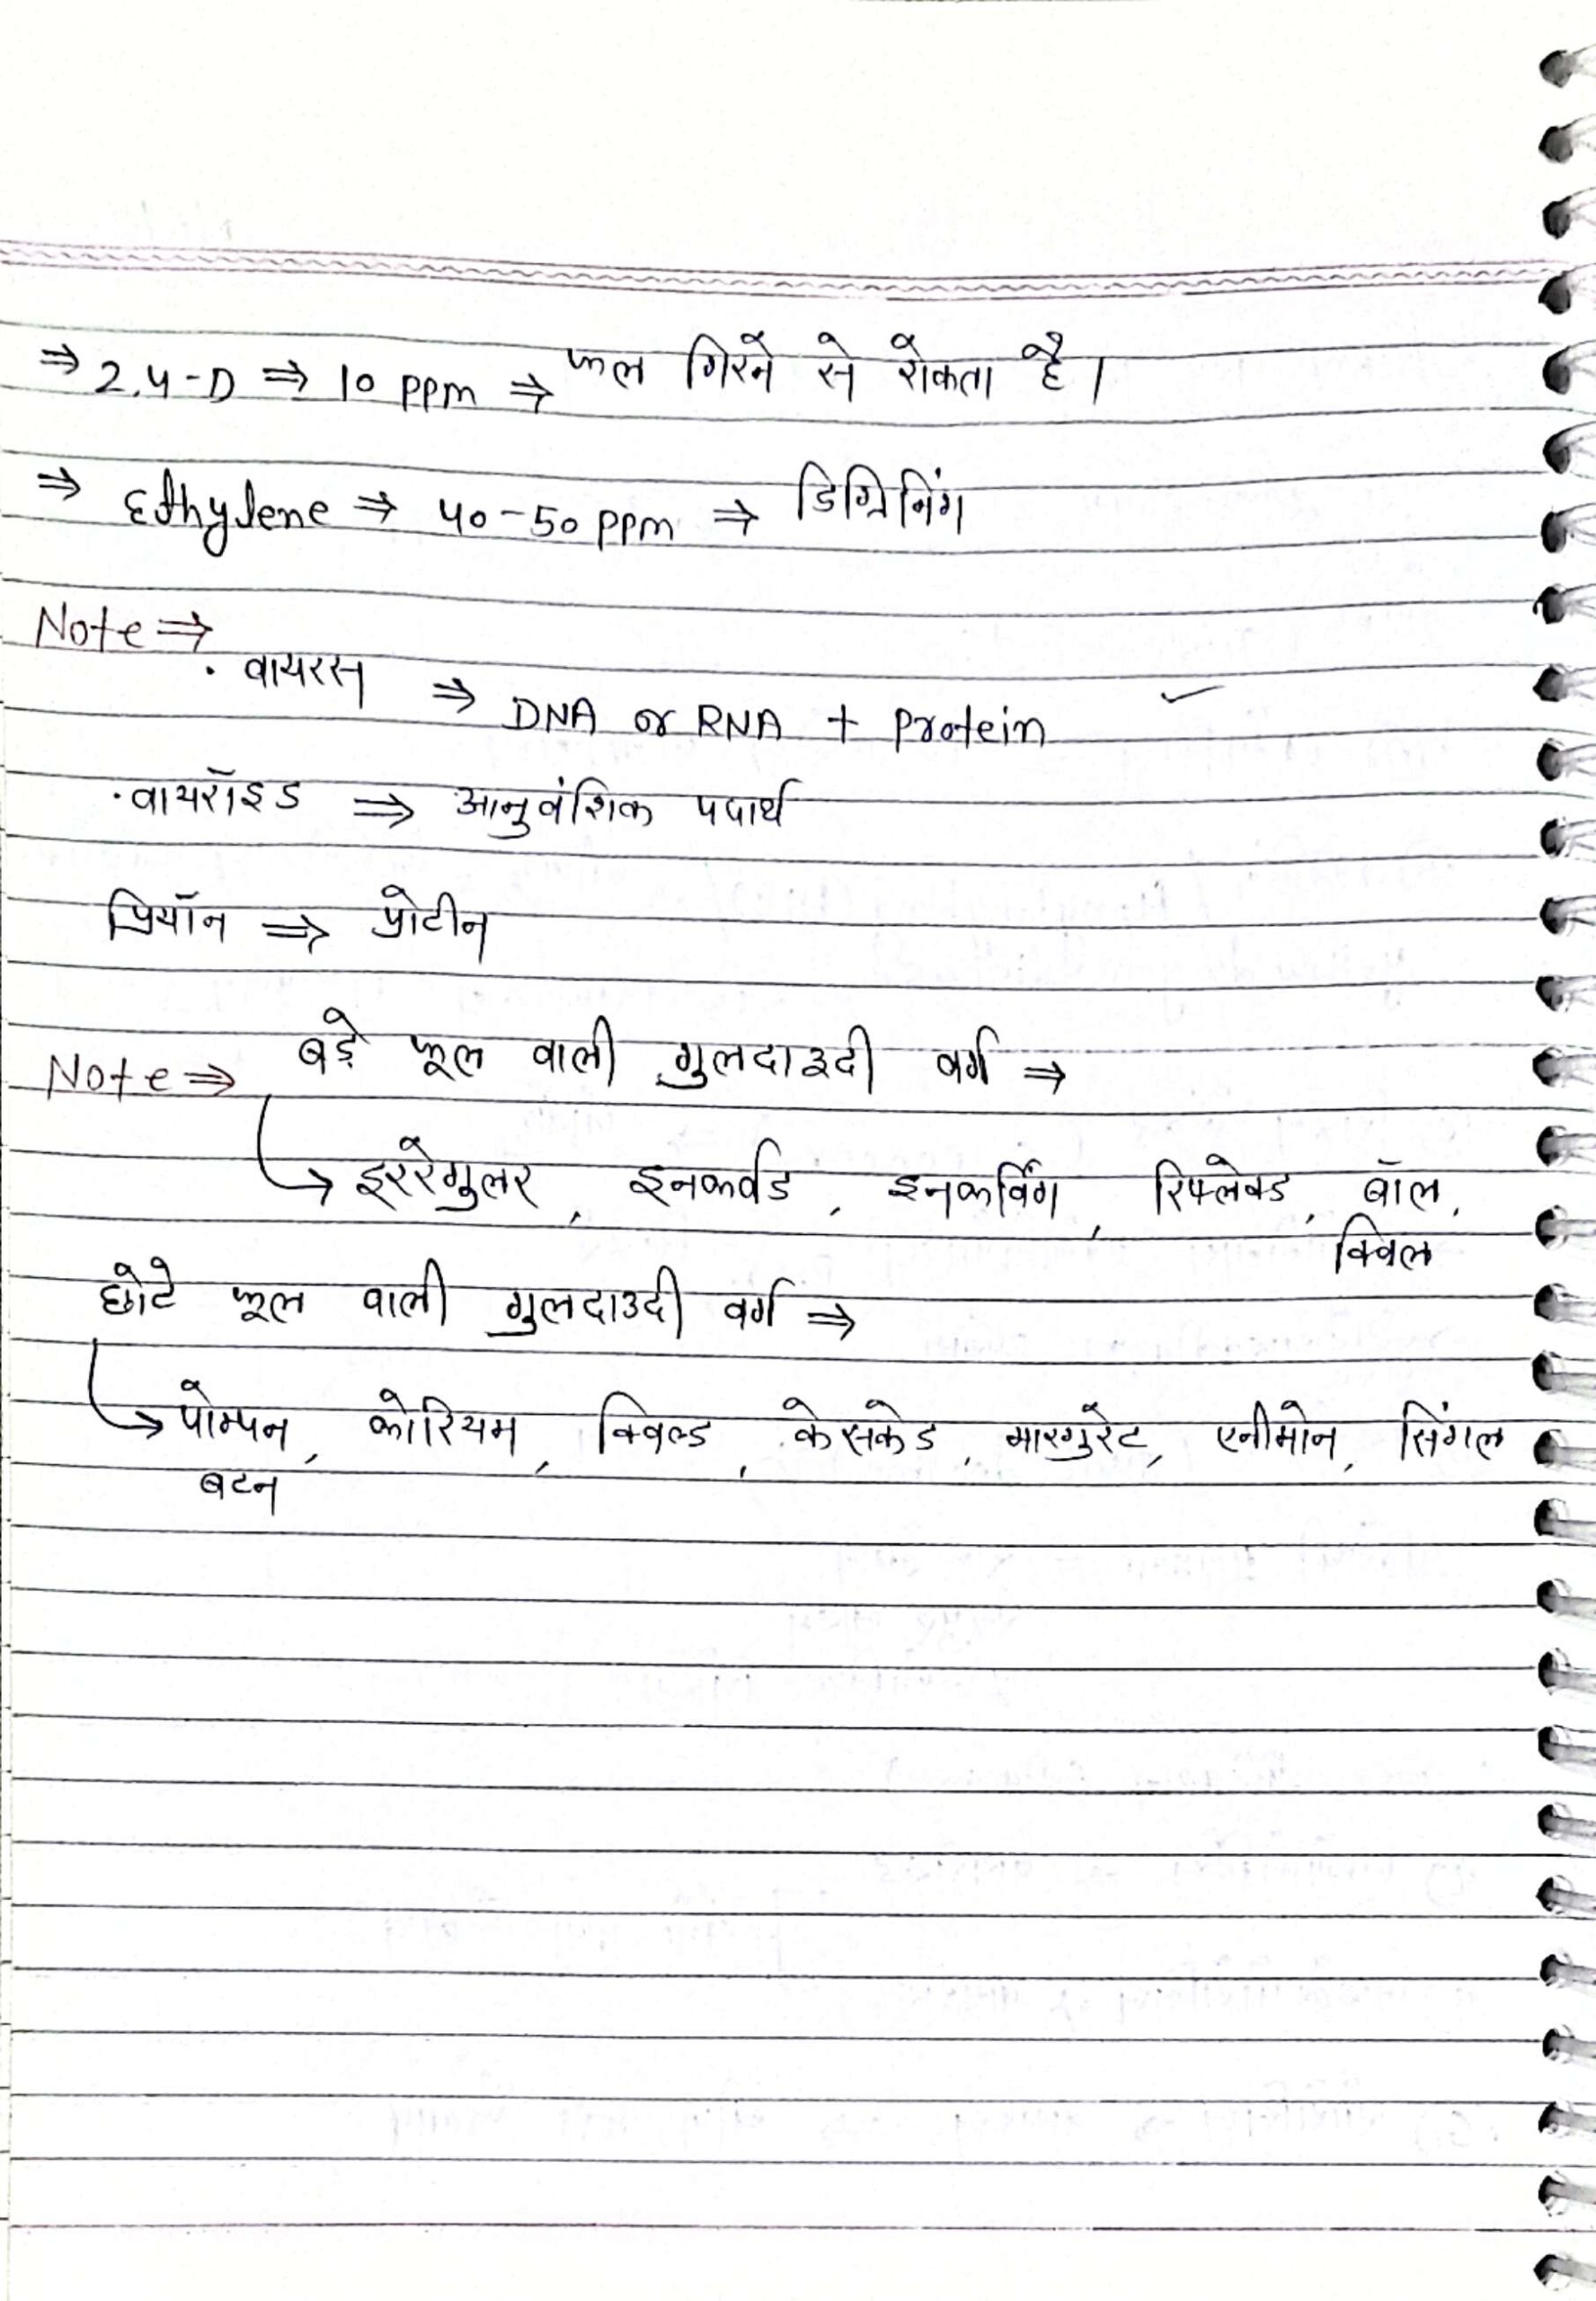 ⇒ 2,4-D ⇒ 10 ppm ⇒ फल गिरने से रोकता है।
⇒ Ethylene ⇒ 40-50 ppm ⇒ डिग्रिनिंग
Note ⇒
· वायरस ⇒ DNA or RNA + Protein ✓
· वायरॉइड ⇒ आनुवंशिक पदार्थ
प्रियॉन ⇒ प्रोटीन
Note ⇒ बड़े फूल वाली गुलदाउदी वर्ग ⇒
↳ इररेगुलर, इनकर्वड, इनकर्विंग, रिफ्लेक्ड, बॉल,
क्विल
छोटे फूल वाली गुलदाउदी वर्ग ⇒
↳ पोम्पन, कोरियम, क्विल्ड, केसकेड, मारगुरेट, एनीमोन, सिंगल
बटन